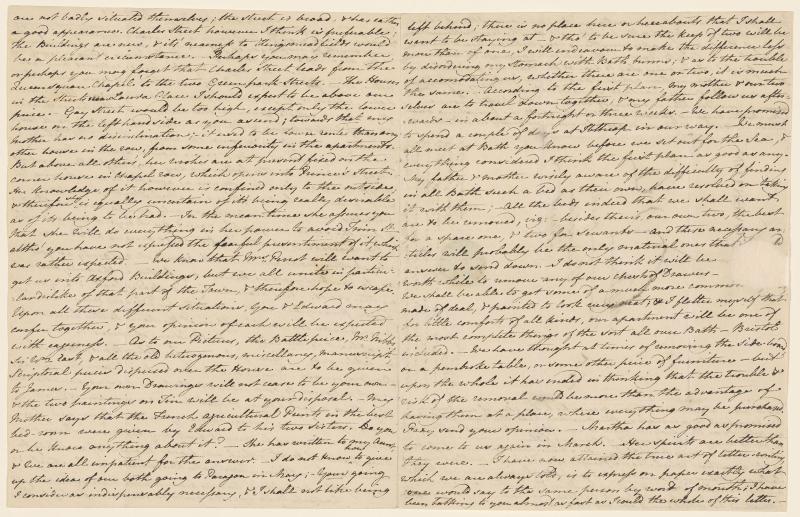 are not badly situated themselves; the Street is broad, & has rather
a good appearance. Charles Street however I think is preferable;
the Buildings are new, & it's nearness to Kingsmead fields would
be a pleasant circumstance. Perhaps you may remember
or perhaps you may forget that Charles Street leads from the
Queen Square Chapel to the two Green park-Streets. — The Houses
in the Streets near Laura Place I should expect to be above our
price. Gay Street would be too high, except only the lower
house on the left hand side as you ascend; towards that my
Mother has no disinclination; it used to be lower rented than any
other house in the row, from some inferiority in the apartments.
But above all others, her wishes are at present fixed on the
corner house in Chapel row, which opens into Prince's Street.
Her knowledge of it however is confined only to the outside,
& therefore she is equally uncertain of its being really desirable
as of its being to be had. — In the meantime she assures you
that she will do everything in her power to avoid Trim St
altho' you have not expressed the fearful presentiment of it, which
was rather expected. — We know that Mrs Perrot will want to
get us into Axford Buildings, but we all unite in particu-
lar dislike of that part of the Town, & therefore hope to escape.
Upon all these different situations, You & Edward may
confer together, & your opinion of each will be expected
with eagerness. — As to our Pictures, the Battlepeice, Mr Nibbs,
Sir Wm East, & all the old heterogenous, miscellany, manuscript,
Scriptoral peices dispersed over the House are to be given
to James. — Your own Drawings will not cease to be your own —
& the two paintings on Tin will be at your disposal. — My
Mother says that the French agricultural Prints in the best
bed-room were given by Edward to his two Sisters. Do you
or he know anything about it? — She has written to my Aunt
& We are all impatient for the answer. — I do not know how to give
up the idea of our both going to Paragon in May; — Your going
I consider as indispensably necessary, & I shall not like being
left behind; there is no place here or hereabouts that I shall
want to be staying at — & tho' to be sure the keep of two will be
more than of one, I will endeavour to make the difference less
by disordering my Stomach with Bath bunns; & as to the trouble
of accomodating us, whether there are one or two, it is much
the same. — According to the first plan, my mother & our two
selves are to travel down together; & my father follow us after-
-wards — in about a fortnight or three weeks. — We have promised
to spend a couple of days at Ibthrop in our way. — We must
all meet at Bath you know before we set out for the Sea, &
everything considered I think the first plan as good as any.
My father & mother wisely aware of the difficulty of finding
in all Bath such a bed as their own, have resolved on taking
it with them; — All the beds indeed that we shall want
are to be removed, viz: — besides theirs, our own two, the best
for a spare one, & two for servants — and these necessary ar-
ticles will probably be the only material ones that
answer to send down. — I do not think it will be
worth while to remove any of our chests of Drawers —
We shall be able to get some of a much more commo
made of deal, & painted to look very neat; & I flatter myself that
for little comforts of all kinds, our apartment will be one of
the most complete things of the sort all over Bath — Bristol
included. — We have thought at times of removing the side-board
or a pembroke table, or some other peice of furniture — but
upon the whole it has ended in thinking that the trouble &
risk of the removal would be more than the advantage of
having them at a place, where everything may be purchased.
Pray send your opinion. — Martha has as good as promised
to come to us again in March. — Her spirits are better than
they were. — I have now attained the true art of letter-writing,
which we are always told, is to express on paper exactly what
one would say to the same person by word of mouth; I have
been talking to you almost as fast as I could the whole of this letter. —